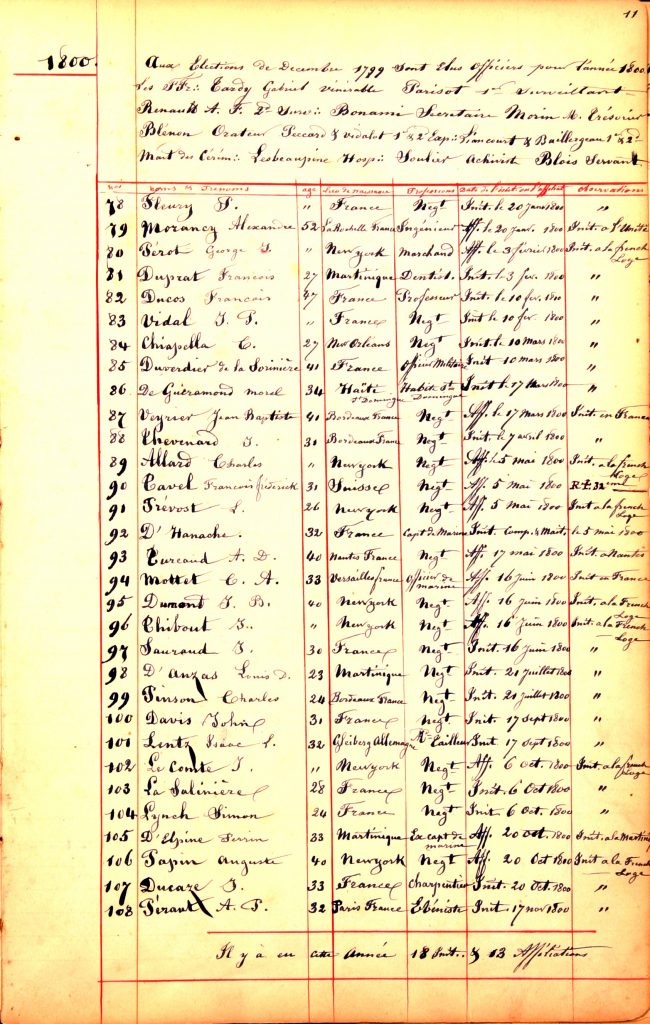 11
1800.
Aux Elections de Decembre 1799 Sont Elus Officiers pour l'année 1800.
Les FFr∴ Tardy Gabriel Vénérable Parisot 1er Surveillant
Renault A. F. 2d Surv∴ Bonami Secretaire Morin M. Trésorier
Blénon Orateur Peccard & Vidalot 1er & 2 Exp∴ Liancourt & Baillergeau 1er & 2d
Mait des Cérém∴ Lesbeaupine Hosp∴ Soulier Achivist Blois Servant
Nos Noms & Prénoms age Lieu de Naissance Professions Date de l'Init ou l'affiliat Observations
78 Fleury F. " France Negt Init. le 20 Janv 1800 "
79 Morancy Alexandre 52 La Rochelle France Ingénieur Aff. le 20 Janv. 1800 Init. a l'Unité
80 Pérot George T. " New york Marchand Aff. le 3 février 1800 Init. a la french Loge
81 Duprat Francois 27 Martinique Dentist. Init. le 3 fev. 1800 "
82 Ducos Francois 47 France Professeur Init. le 10 fev. 1800 "
83 Vidal J. P. " France Negt Init. le 10 fev. 1800 "
84 Chiapella C. 27 New Orléans Negt Init. le 10 Mars 1800 "
85 Duverdier de la Sorinière 41 France Officier Militaire Init 10 mars 1800 "
86 De Guéramond morel 34 Haïti St Domingue Habit. St Domingue Init le 17 Mars 1800 "
87 Veyrier Jean Baptiste 41 Bordeaux France Negt Aff. le 17 Mars 1800 Init. en France
88 Thevenard J. 31 Bordeaux France Negt Init. le 7 avril 1800 "
89 Allard Charles " New york Negt Aff. le 5 mai 1800 Init. a la french Loge
90 Tavel Francois frederick 31 Suisse Negt Aff. 5 mai 1800 R ‡ 32 eme
91 Prévost L. 26 New york Negt Aff. 5 mai 1800 Init a la french Loge
92 D'Hanache. 32 France Capt de Marine Init. Comp. & Mait. le 5 mai 1800
93 Tureaud A. D. 40 Nantes France Negt Aff. 17 mai 1800 Init. a Nantes
94 Mottet C. A. 33 Versailles france Officier de marine Aff. 16 Juin 1800 Init en France
95 Dumont J. B. 40 New york Negt Aff. 16 Juin 1800 Init. a la French Loge
96 Thibout J. " New york Negt Aff. 16 Juin 1800 Init. a la French Loge
97 Sauraud J. 30 France Negt Init. 16 Juin 1800 "
98 D'Anzas Louis D. 23 Martinique Negt Init. 21 Juillet 1800 "
99 Pinson Charles 24 Bordeaux France Negt Init. 21 Juillet 1800 "
100 Davis John 31 France Negt Init. 17 Sept 1800 "
101 Lentz Isaac L. 32 Gleiberg Allemagne Md Tailleur Init. 17 Sept 1800 "
102 Le Comte J. " New york Negt Aff. 6 Oct 1800 Init a la french Loge
103 La Salinière 28 France Negt Init. 6 Oct 1800 "
104 Lynch Simon 24 France Negt Init 6 Oct. 1800 "
105 D'Elpine Perrin 33 Martinique Ex capt de marine Aff. 20 Oct. 1800 Init. a la Martini
106 Papin Auguste 40 New york Negt Aff. 20 Oct 1800 Init a la French Loge
107 Ducaze J. 33 France Charpentier Init. 20 Oct. 1800 "
108 Pérault A. P. 32 Paris France Ebéniste Init. 17 nov 1800 "
Il y à eu cette Année 18 Init.. & 13 Affiliations